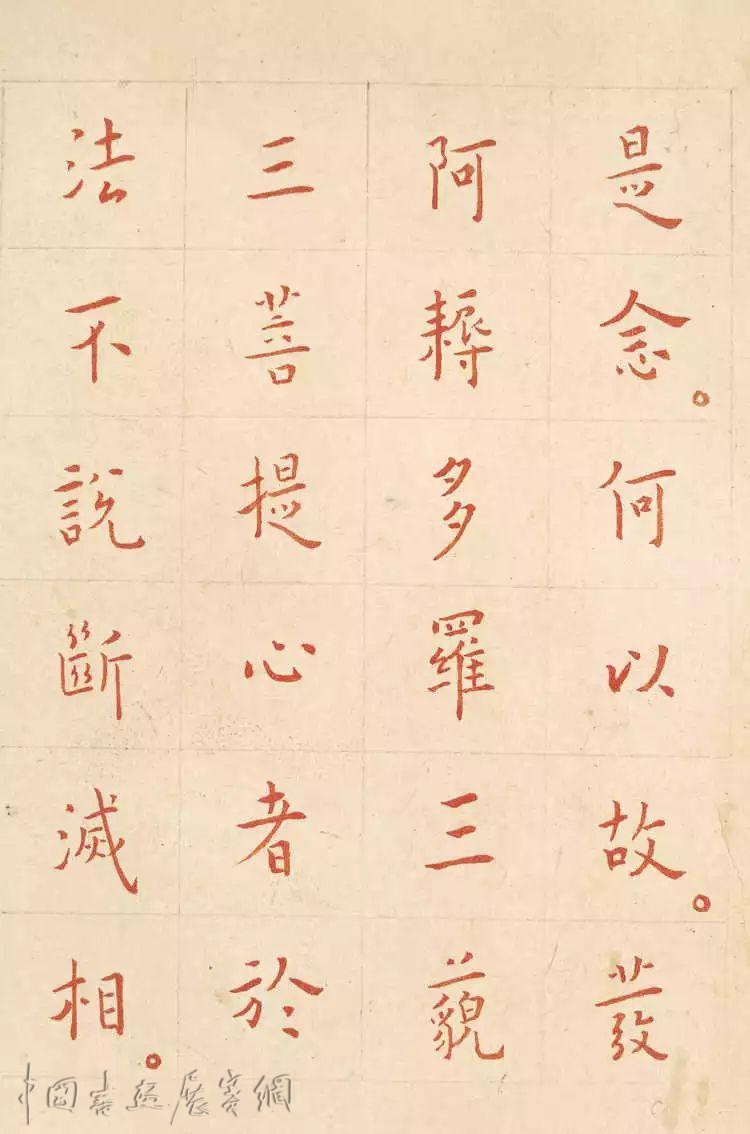 是念。何以故。發
阿耨多羅三藐
三菩提心者於
法不說斷滅相。
中国書法展賽網